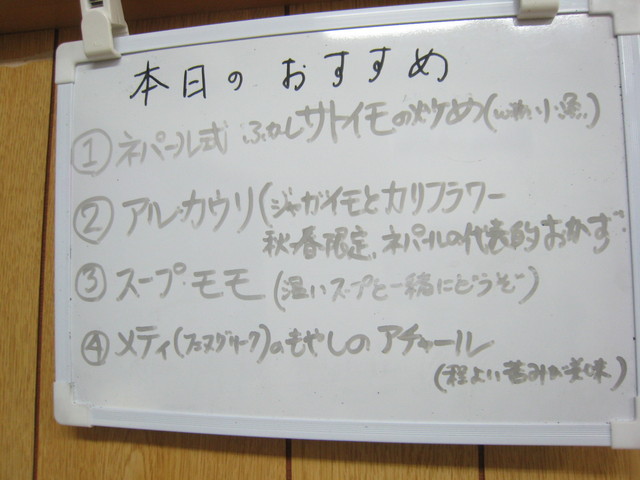 本日のおすすめ
① ネパール式 ふかしサトイモの炒め(小魚)
② アル・カウリ(ジャガイモとカリフラワー
秋・春限定、ネパールの代表的おかず
③ スープ・モモ(温いスープと一緒にどうぞ)
④ メティ(フェヌグリーク)のもやしのアチャール
(程よい苦みが美味)